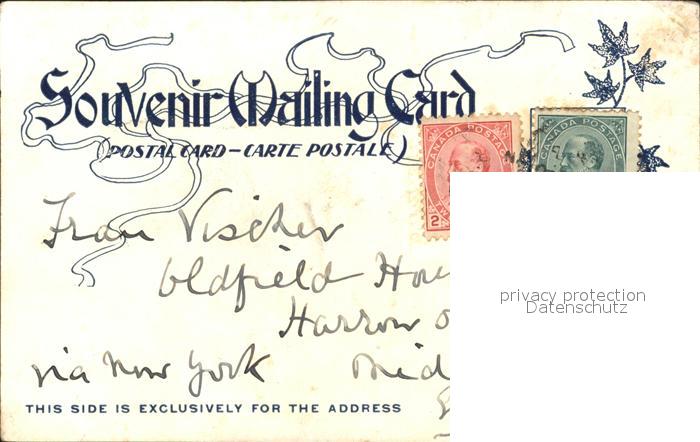 Souvenir Mailing Card
(POSTAL CARD – CARTE POSTALE)
CANADA POSTAGE
CANADA POSTAGE
2
Frau Vischer
Oldfield
Harrow
via New York
THIS SIDE IS EXCLUSIVELY FOR THE ADDRESS
privacy protection
Datenschutz